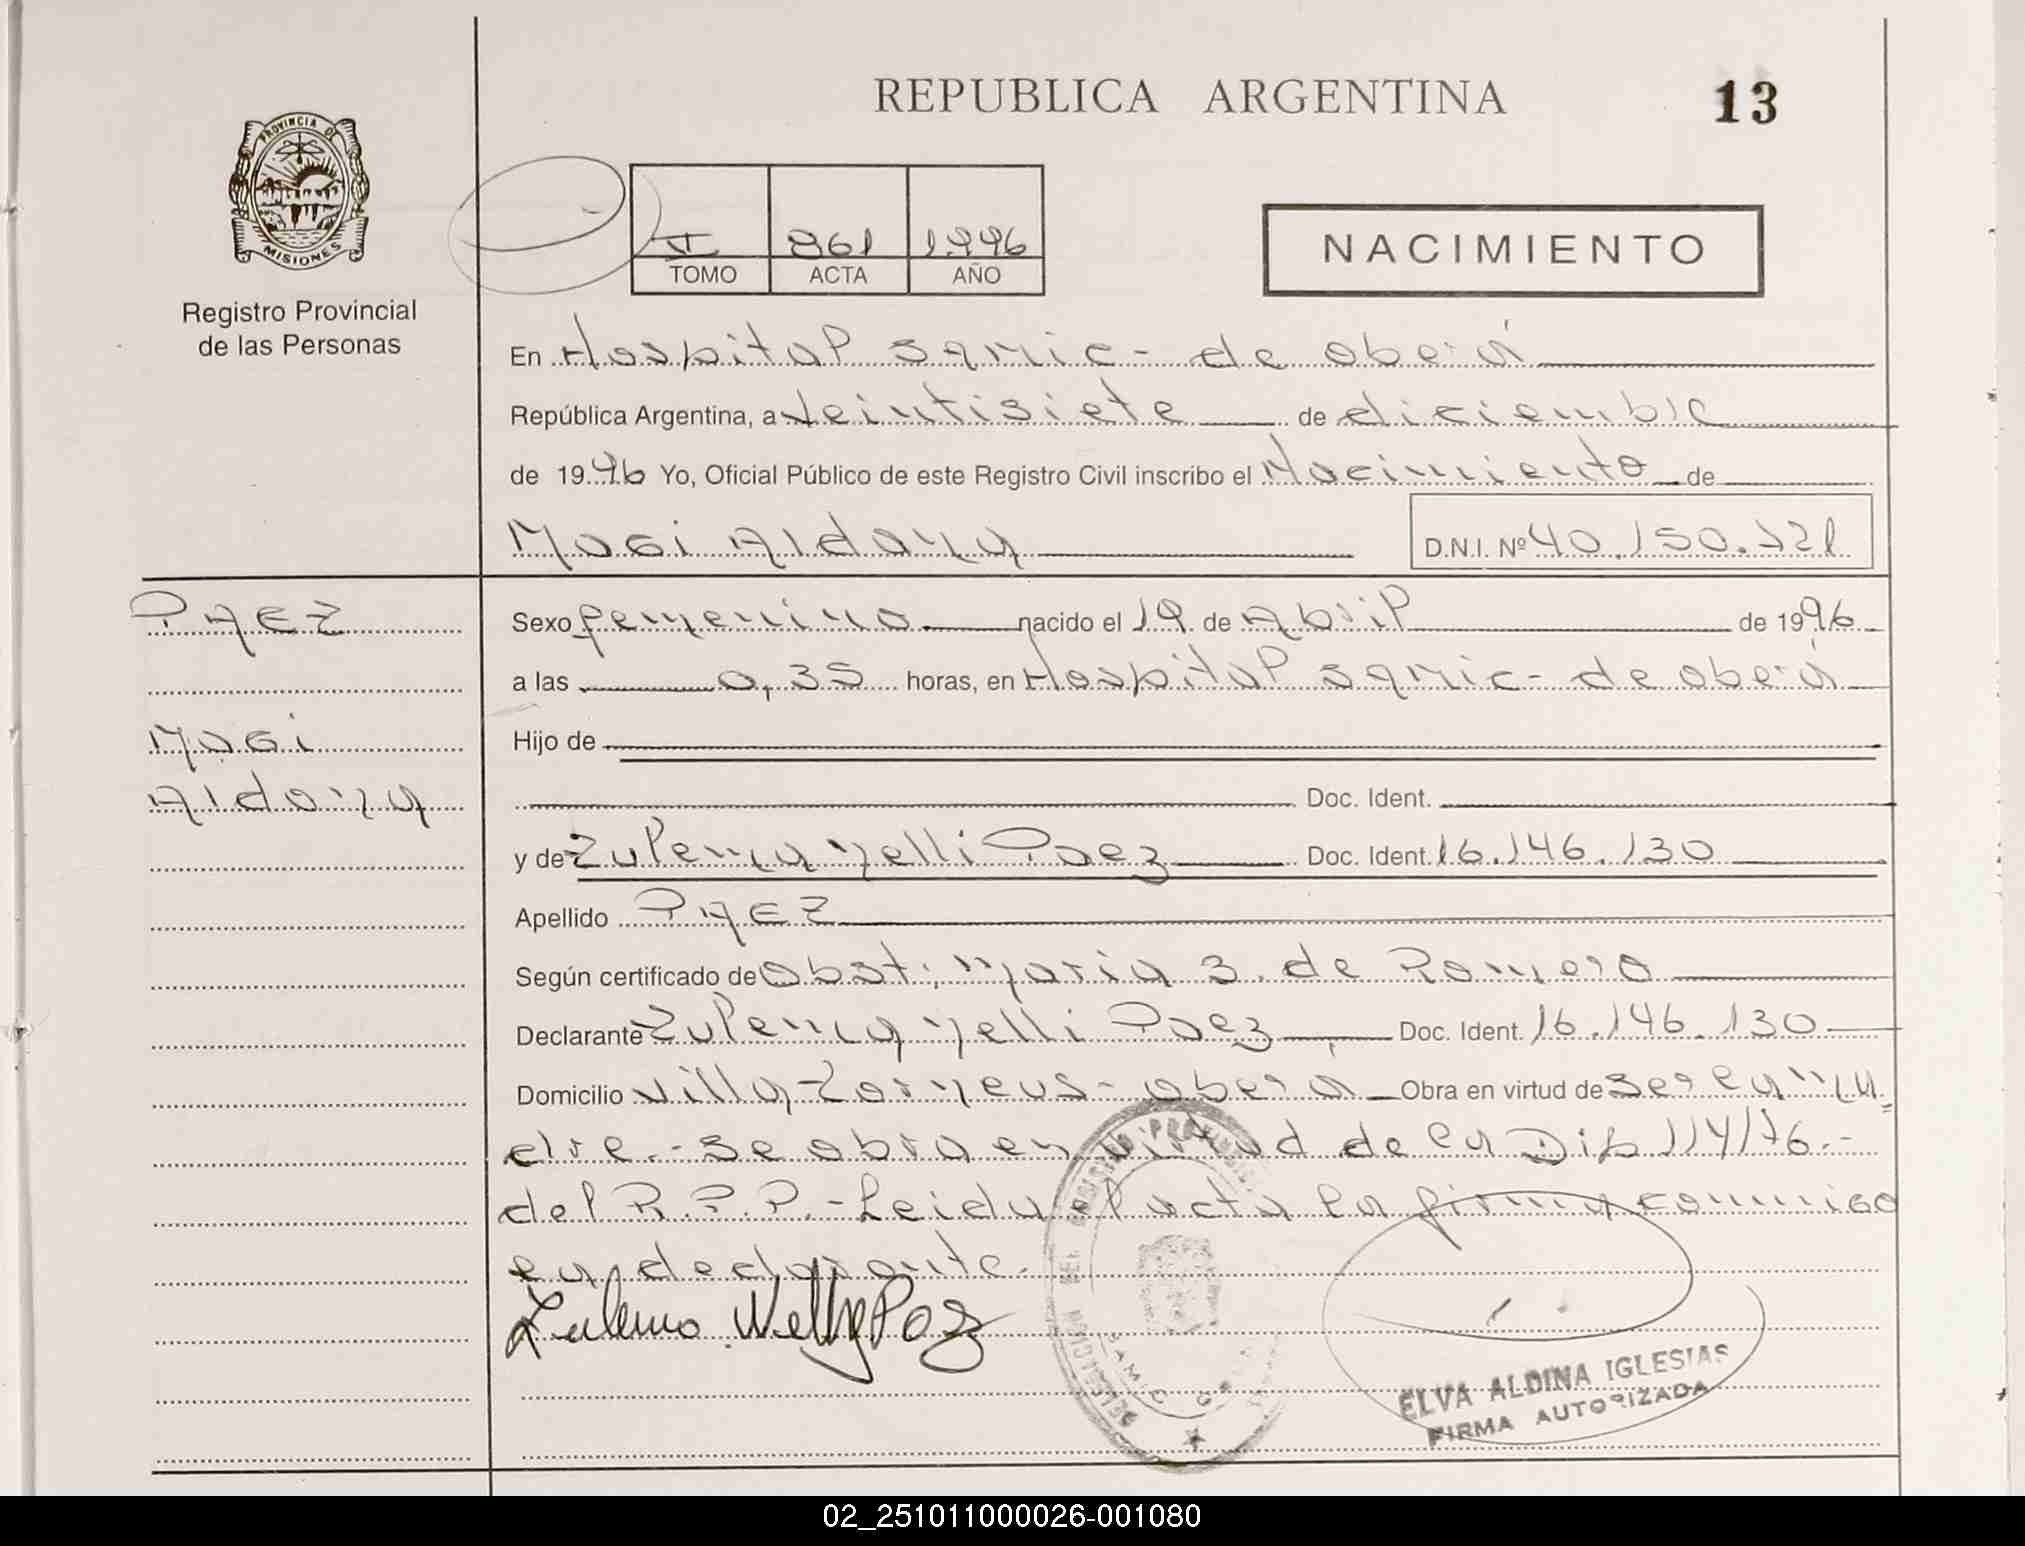 REPUBLICA ARGENTINA
13
PROVINCIA DE
MISIONES
Registro Provincial
de las Personas
TOMO ACTA AÑO
861 1996
NACIMIENTO
En Hospital Samic - de oberá
República Argentina, a veintisiete de diciembre
de 1996 Yo, Oficial Público de este Registro Civil inscribo el Nacimiento de
Magi Aldana
D.N.I. Nº 40.150.721
PAEZ
Magi
Aldana
Sexo femenino nacido el 19 de Abril de 1996
a las 0,35 horas, en Hospital Samic - de oberá
Hijo de
Doc. Ident.
y de Zulema Nelli Paez Doc. Ident. 16.146.130
Apellido PAEZ
Según certificado de obst. Maria S. de Romero
Declarante Zulema Nelli Paez Doc. Ident. 16.146.130
Domicilio Villa - oberá Obra en virtud de ser la ma
dre.- Se obra en virtud de la Dip 114/76.-
del R.P.P.- Leida el acta la firma conmigo
la declarante.
Zulema Nelly Paez
ELVA ALDINA IGLESIAS
FIRMA AUTORIZADA
02_251011000026-001080